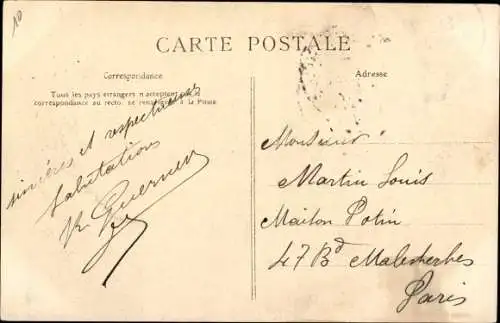 10
CARTE POSTALE
Correspondance
Tous les pays étrangers n'acceptent pas la
correspondance au recto, se renseigner à la Poste.
sincères et respectueuses
Salutations
Adresse
Monsieur
Martin Louis
Maison Potin
47 Bd Malesherbes
Paris